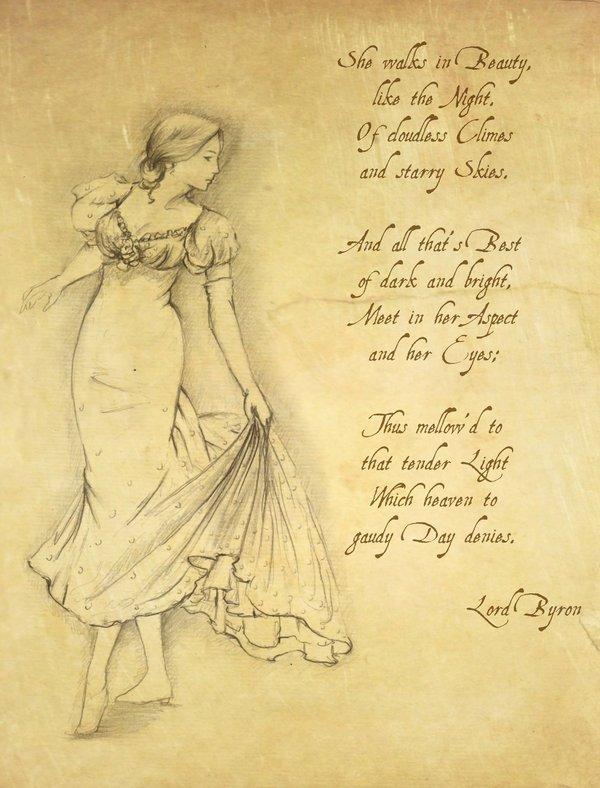 She walks in Beauty,
like the Night.
Of cloudless Climes
and starry Skies.
And all that's Best
of dark and bright,
Meet in her Aspect
and her Eyes:
Thus mellow'd to
that tender Light
Which heaven to
gaudy Day denies.
Lord Byron